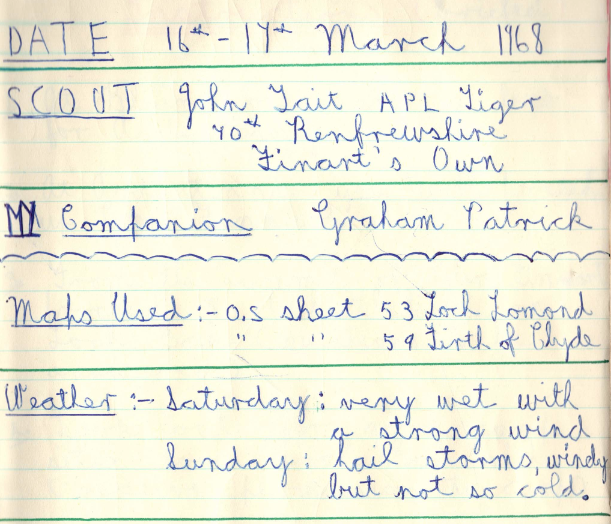 DATE 16th - 17th March 1968
SCOUT John Tait APL Tiger
70th Renfrewshire
Finart's Own
MY Companion Graham Patrick
Maps Used :- O.S sheet 53 Loch Lomond
" " 59 Firth of Clyde
Weather :- Saturday : very wet with
a strong wind
Sunday : hail storms, windy
but not so cold.